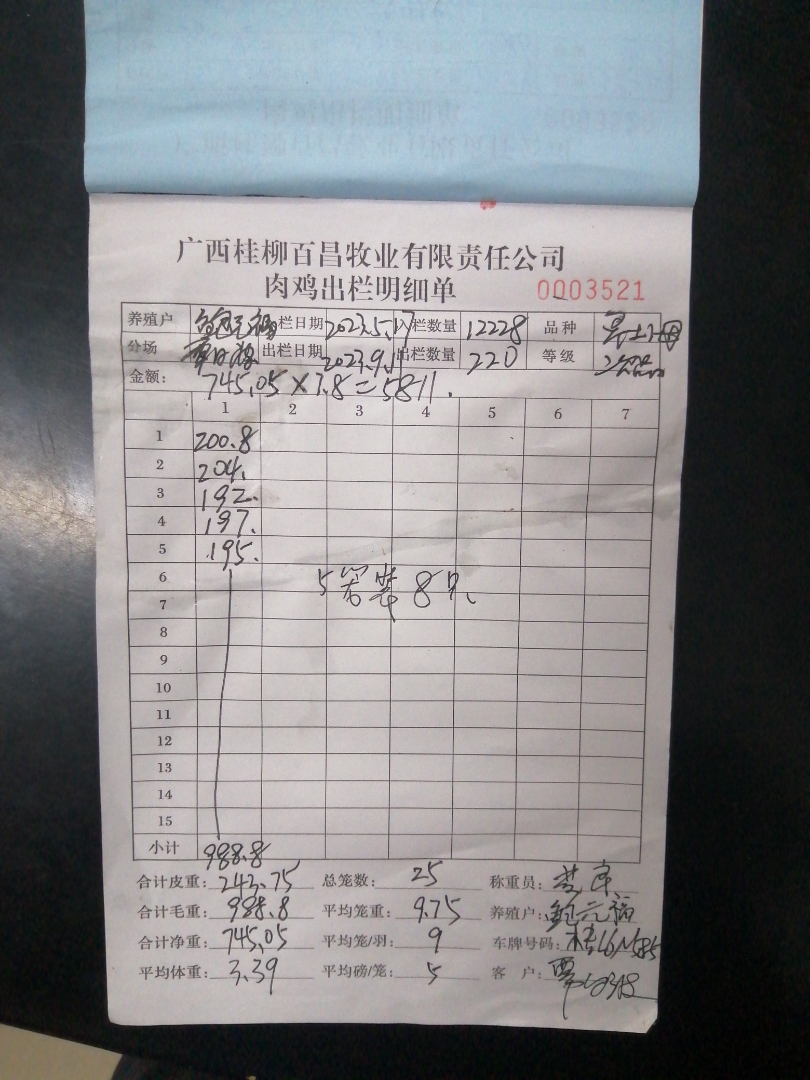 广西桂柳百昌牧业有限责任公司
肉鸡出栏明细单 0003521
养殖户 鲍元福 栏日期 2023.5.17 栏数量 12228 品种
分场 出栏日期 2023.9.11 出栏数量 220 等级
金额: 745.05×7.8=5811.
1 2 3 4 5 6 7
1 200.8
2 204.
3 192.
4 197.
5 195.
6 5笼装8只
7
8
9
10
11
12
13
14
15
小计 988.8
合计皮重: 243.75 总笼数: 25 称重员:
合计毛重: 988.8 平均笼重: 9.75 养殖户: 鲍元福
合计净重: 745.05 平均笼/羽: 9 车牌号码:
平均体重: 3.39 平均磅/笼: 5 客 户: